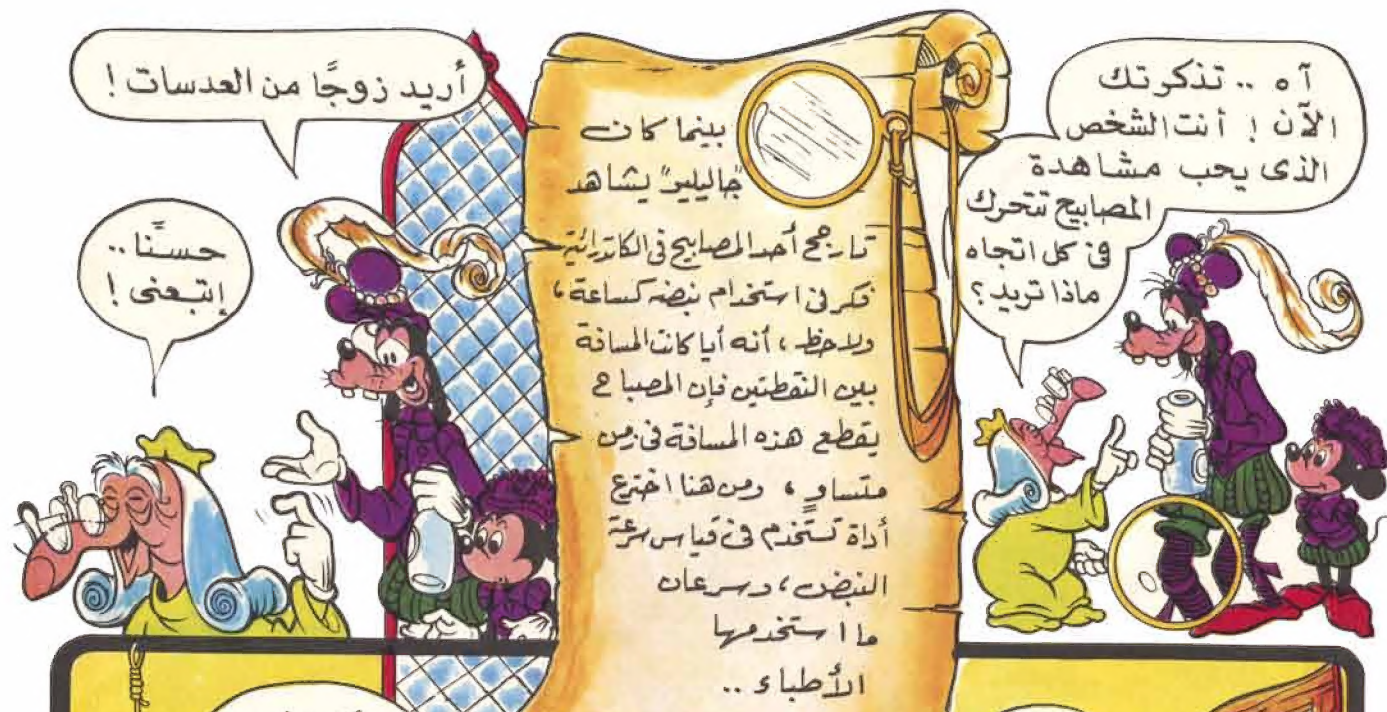 آه .. تذكرتك
الآن ! أنت الشخص
الذى يحب مشاهدة
المصابيح تتحرك
فى كل اتجاه
ماذا تريد ؟
بينما كان
"جاليليو" يشاهد
تارجح أحد المصابيح فى الكاتدرائية
فكر فى استخدام نبضه كساعة ،
ولاحظ ، أنه أيا كانت المسافة
بين النقطتين فإن المصباح
يقطع هذه المسافة فى زمن
متساوٍ ، ومن هنا اخترع
أداة تستخدم فى قياس سرعة
النبض ، وسرعان
ما استخدمها
الأطباء ..
أريد زوجًا من العدسات !
حسنًا ..
إتبعنى !